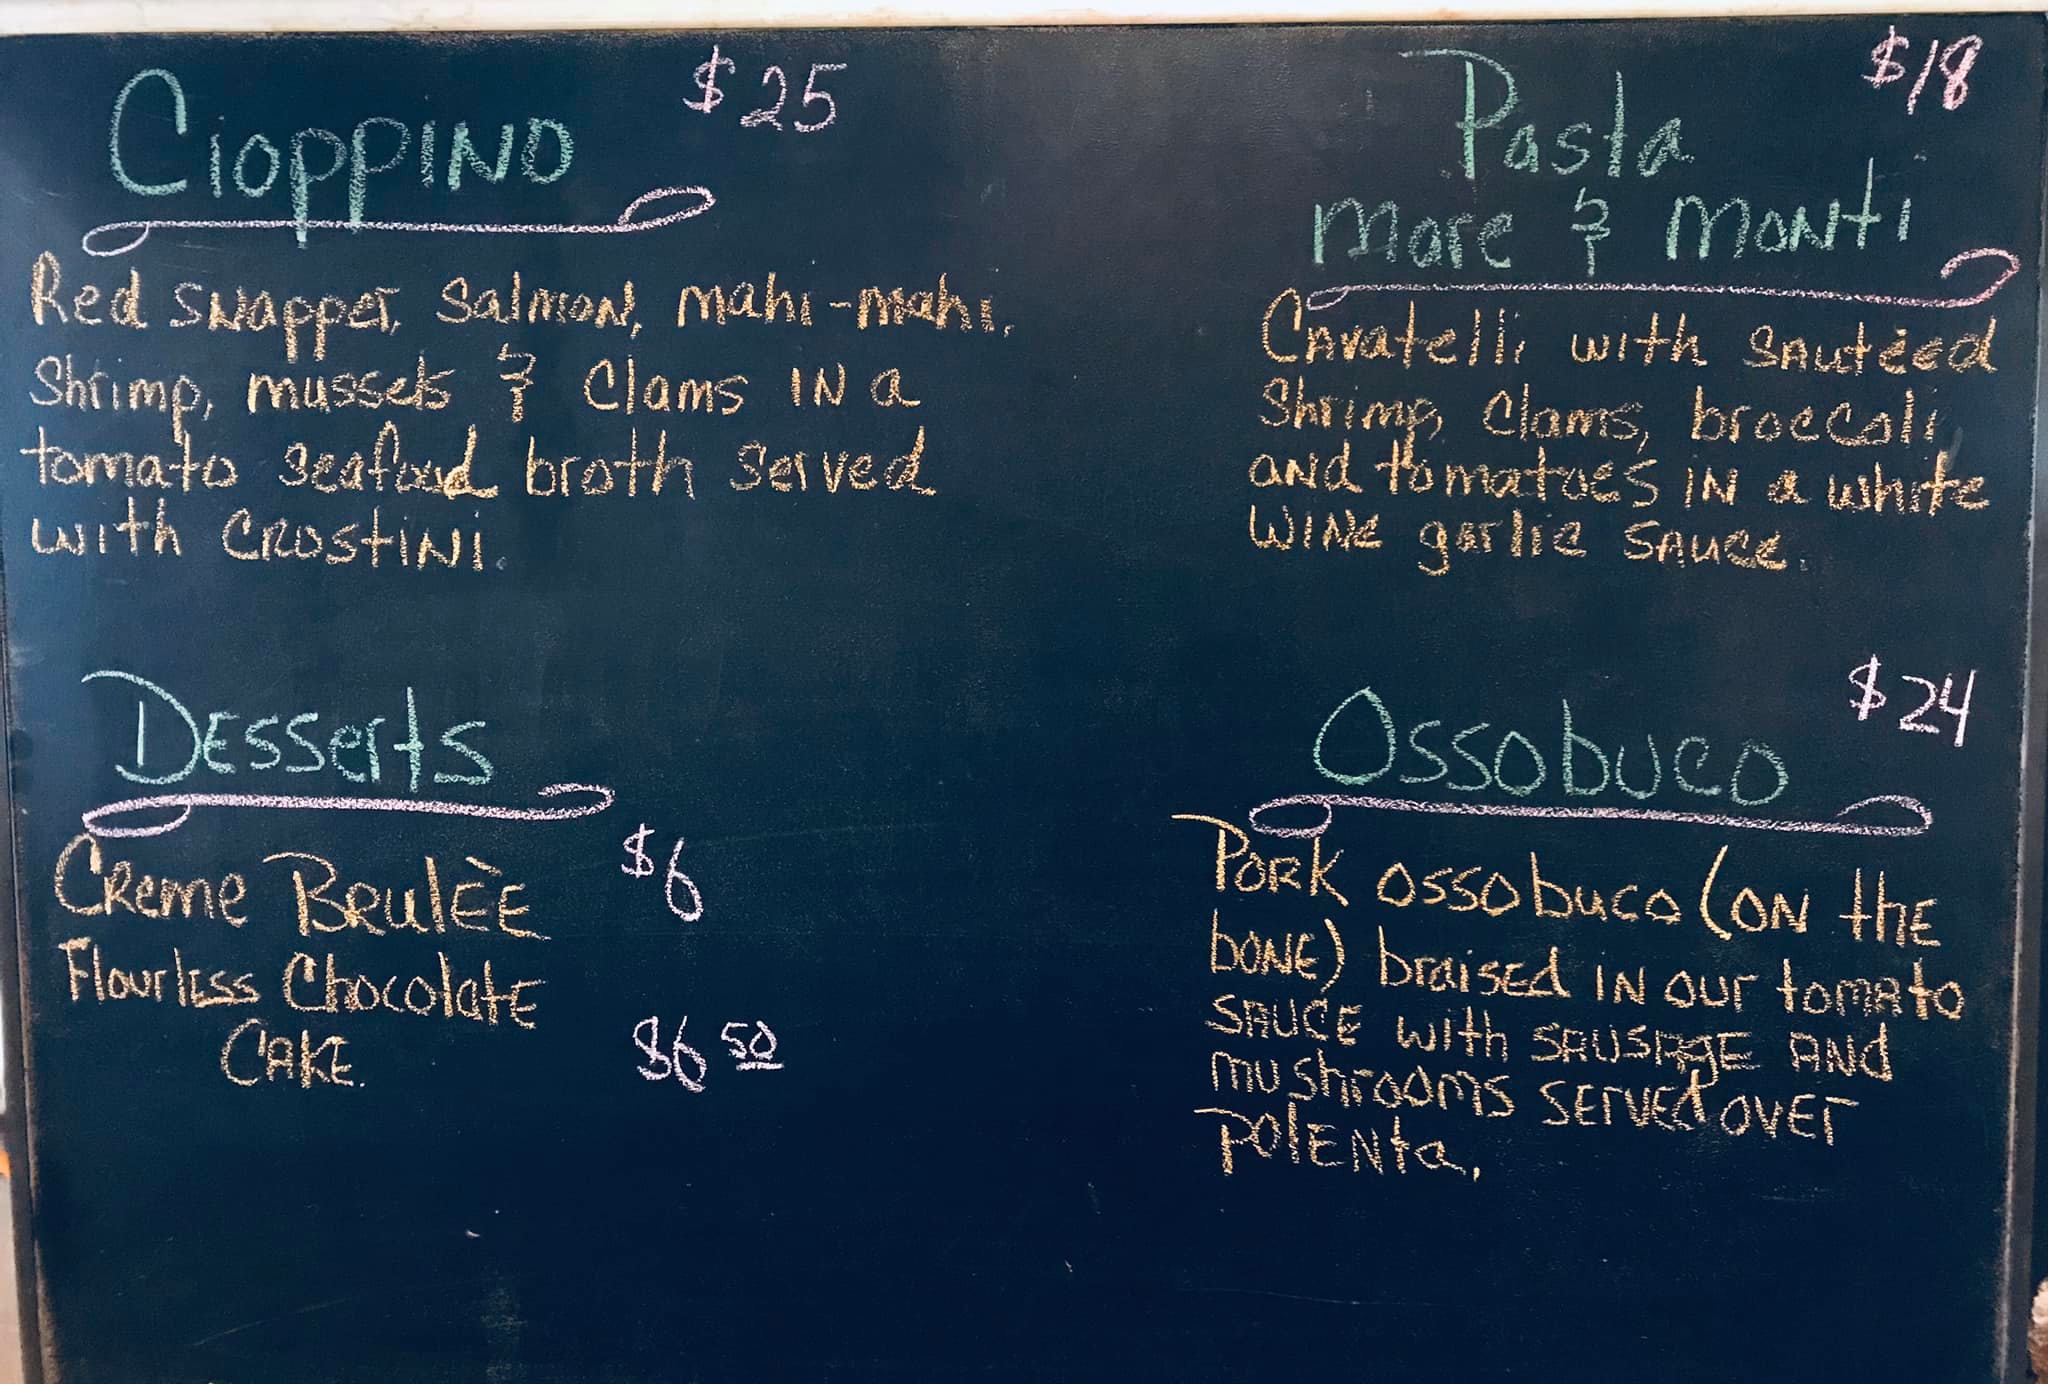 Cioppino $25
Red snapper, Salmon, mahi-mahi,
Shrimp, mussels & Clams in a
tomato seafood broth served
with crostini.
Pasta $18
mare & monti
Cavatelli with sautèed
Shrimp, Clams, broccoli
and tomatoes in a white
wine garlic sauce.
Desserts
Creme Brulèe $6
Flourless Chocolate
Cake. $6 50
Ossobuco $24
Pork ossobuco (on the
bone) braised in our tomato
sauce with sausage and
mushrooms served over
polenta.